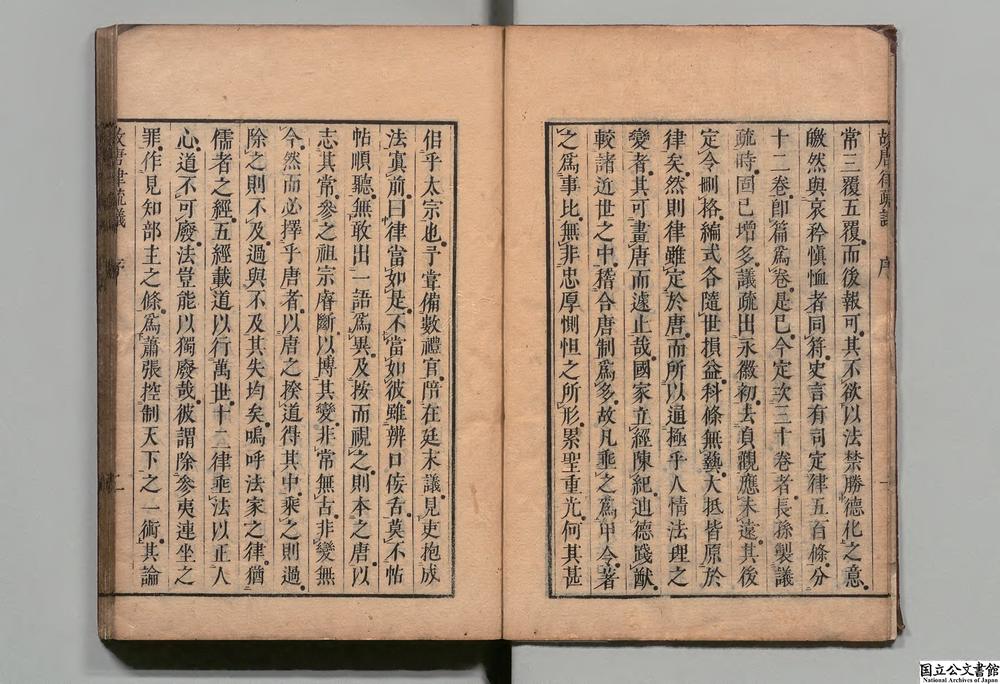 故唐律疏議 序 一
常三覆五覆而後報可其不欲以法禁勝德化之意
皦然與哀矜愼恤者同符史言有司定律五百條分
十二卷卽篇爲卷是已今定次三十卷者長孫製議
疏時固已增多議疏出永徽初去貞觀應未遠其後
定令刪格編式各隨世損益科條無藝大抵皆原於
律矣然則律雖定於唐而所以通極乎人情法理之
變者其可畫唐而遽止哉國家立經陳紀迪德踐猷
較諸近世之中稽合唐制爲多故凡垂之爲甲令著
之爲事比無非忠厚惻怛之所形累聖重光何其甚
似乎太宗也予嘗備數禮官陪在廷末議見吏抱成
法寘前曰律當如是不當如彼雖辨口佞舌莫不帖
帖順聽無敢出一語爲異及按而視之則本之唐以
志其常參之祖宗睿斷以博其變非常無古非變無
今然而必擇乎唐者以唐之揆道得其中乘之則過
除之則不及過與不及其失均矣嗚呼法家之律猶
儒者之經五經載道以行萬世十二律垂法以正人
心道不可廢法豈能以獨廢哉彼謂除參夷連坐之
罪作見知部主之條爲蕭張控制天下之一術其論
故唐律疏議 序 二
国立公文書館
National Archives of Japan